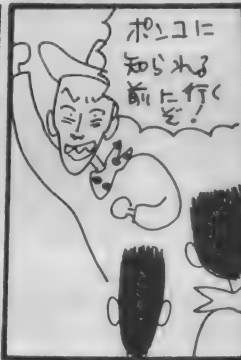 ポンコに
知られる
前に行く
ぞ!